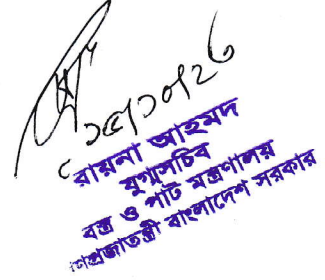 রায়না আহমদ
যুগ্মসচিব
বস্ত্র ও পাট মন্ত্রণালয়
গণপ্রজাতন্ত্রী বাংলাদেশ সরকার